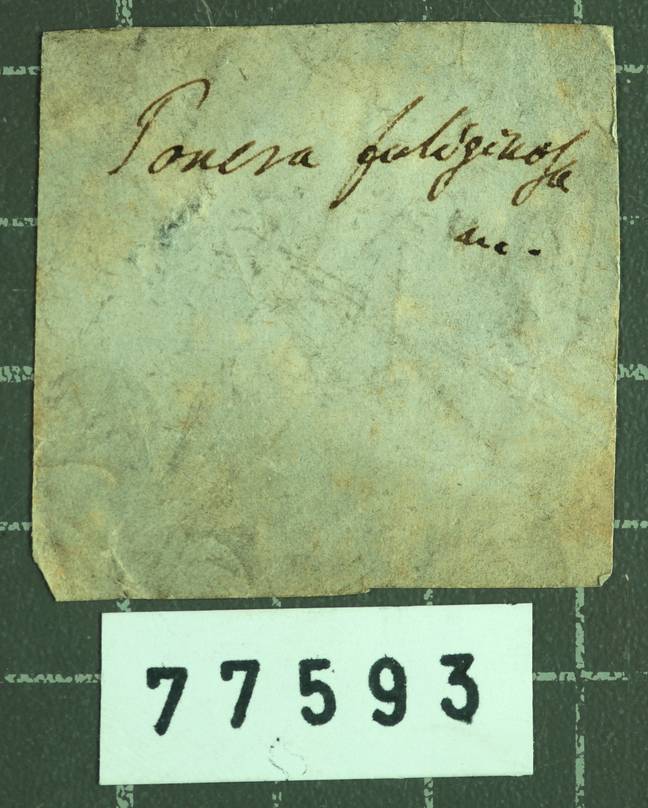 Ponera fuliginosa
m.
77593